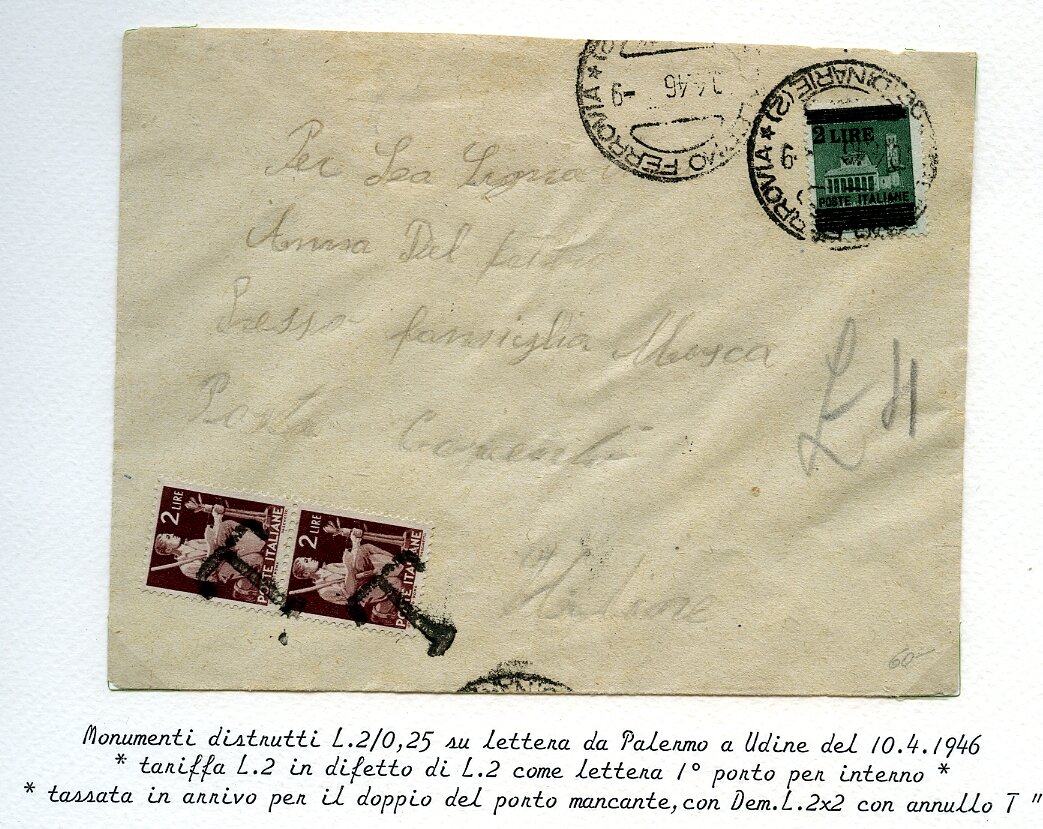 PALERMO FERROVIA * 
-9 4.46
FERROVIA * ORDINARIE (2)
-9
2 LIRE
POSTE ITALIANE
Per La
Anna Del
Presso famiglia Mosca
Porta
L 4
Udine
2 LIRE
POSTE ITALIANE
2 LIRE
POSTE ITALIANE
T T
60-
Monumenti distrutti L.2/0,25 su lettera da Palermo a Udine del 10.4.1946
* tariffa L.2 in difetto di L.2 come lettera 1° porto per interno *
* tassata in arrivo per il doppio del porto mancante,con Dem.L.2x2 con annullo T "